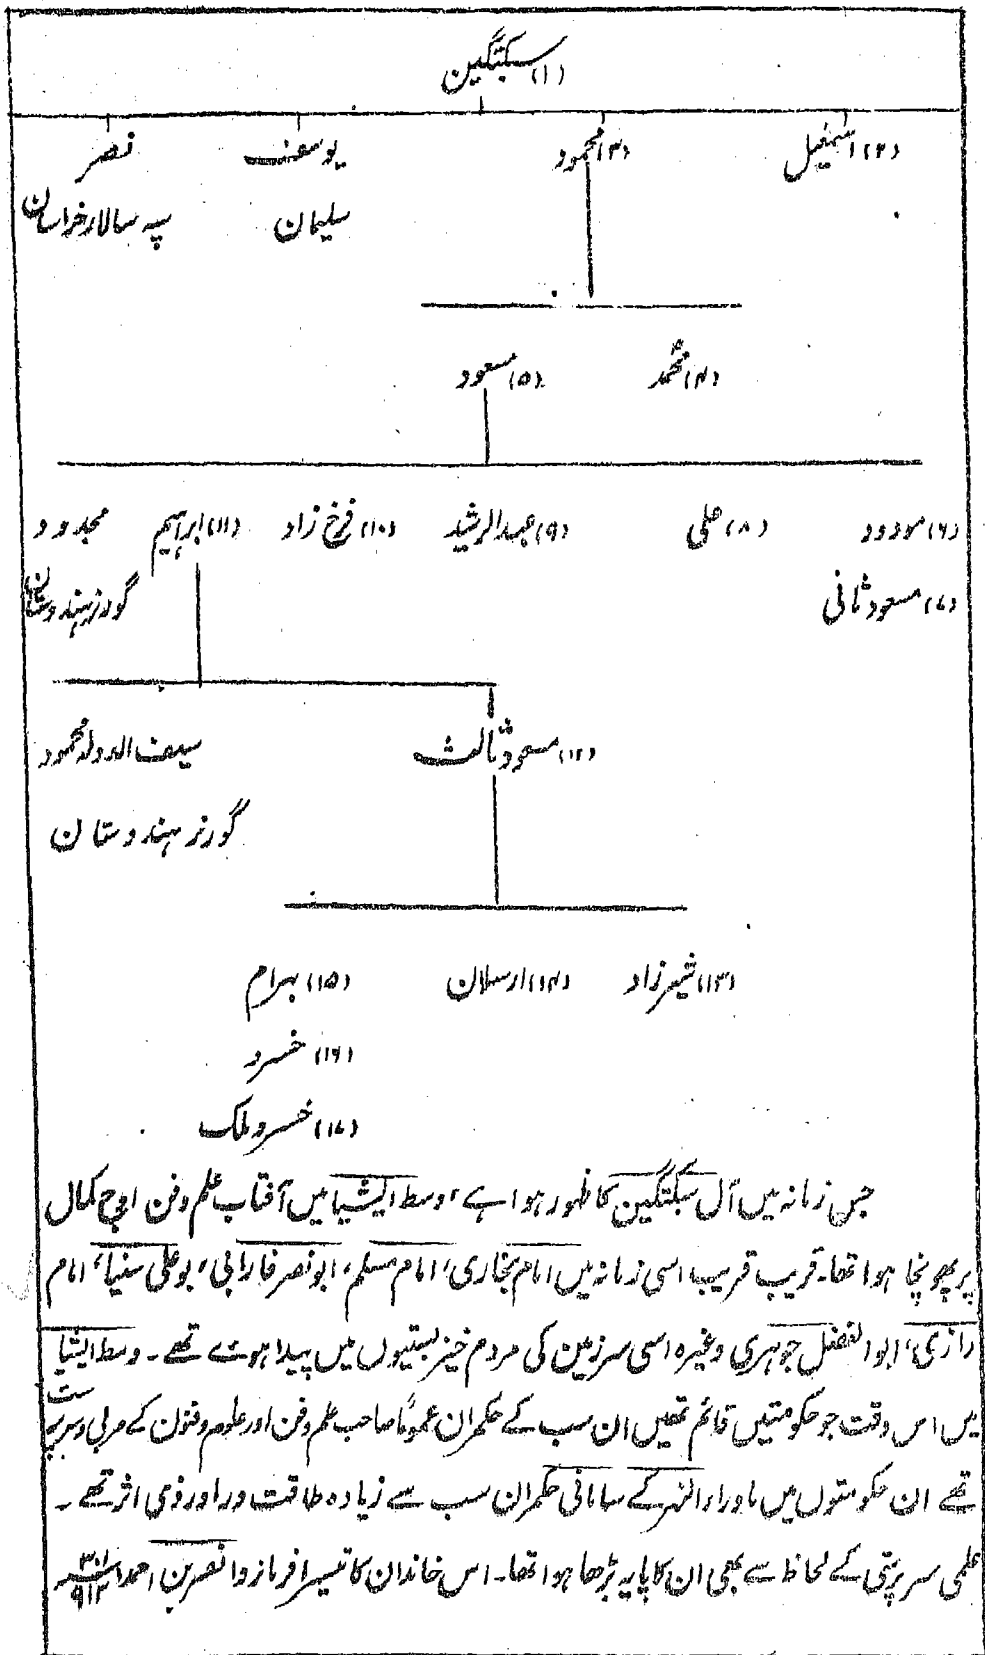 (۱) سبکتگین
(۲) اسمٰعیل (۳) محمود یوسف نصر
سلیمان سپہ سالار خراسان
(۴) محمد (۵) مسعود
(۶) مودود (۸) علی (۹) عبدالرشید (۱۰) فرخ زاد (۱۱) ابراہیم مجدود
(۷) مسعود ثانی گورنر ہندوستان
(۱۲) مسعود ثالث سیف الدولہ محمود
گورنر ہندوستان
(۱۳) شیرزاد (۱۴) ارسلان (۱۵) بہرام
(۱۶) خسرو
(۱۷) خسرو ملک
جس زمانہ میں آل سبکتگین کا ظہور ہوا ہے، وسط ایشیا میں آفتاب علم و فن اوج کمال
پر پہونچا ہوا تھا۔ قریب قریب اسی زمانہ میں امام بخاری، امام مسلم، ابو نصر فارابی، بو علی سینا، امام
رازی، ابوالفضل جوہری وغیرہ اسی سرزمین کی مردم خیز بستیوں میں پیدا ہوئے تھے۔ وسط ایشیا
میں اس وقت جو حکومتیں قائم تھیں ان سب کے حکمران عموماً صاحب علم و فن اور علوم و فنون کے مربی و سرپرست
تھے ان حکومتوں میں ماوراء النہر کے سامانی حکمران سب سے زیادہ طاقت ور اور ذی اثر تھے۔
علمی سرپرستی کے لحاظ سے بھی ان کا پایہ بڑھا ہوا تھا۔ اس خاندان کا تیسرا فرمانروا نصر بن احمد ۳۰۱ ۹۱۳